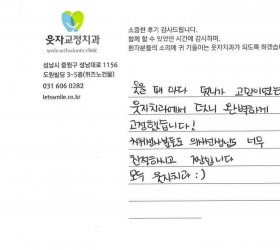 웃자교정치과
smile orthodontic clinic
성남시 중원구 성남대로 1156
도원빌딩 3~5층(위즈노건물)
031 606 0282
letssmile.co.kr
소중한 후기 감사드립니다.
함께 할 수 있었던 시간에 감사하며,
환자분들의 소리에 귀 기울이는 웃자치과가 되도록 하겠습
웃을 때 마다 뭔가 고민이였는
웃자치과에서 다시 완벽하게
교정했습니다!
의사선생님도 너무
친절하시고 짱입니다
모두 웃자치과 :)